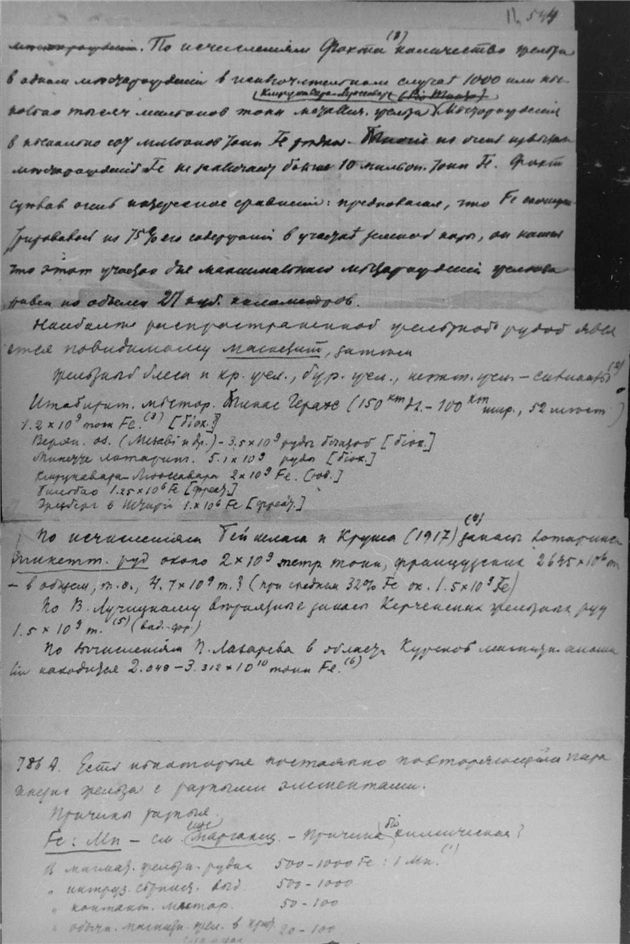 544
По исчислениям Фохта (1) количество железа
в одном месторождении в исключительном случае 1000 или нес-
колько тысяч миллионов тонн металлич. железа Месторождения
в несколько сот миллионов тонн Fe редки. Многие из очень известн.
месторождений Fe не заключают больше 10 миллион. тонн Fe. Фохт
сделав очень интересное сравнение: предполагая, что Fe
из 75% его содержания в участке земной коры, он нашел
что этот участок для максимального месторождения железа
равен по объему 27 куб. километров.
Наиболее распространенной железной рудой явля-
ется повидимому магнетит, затем
железный блеск и кр. жел., бур. жел., шпат. жел. – (2)
Итабирит. местор. Минас Гераес (150 km дл. – 100 km шир., 52 мест )
1.2 × 10⁹ тонн Fe. (3) [биок.]
Верхн. оз. (Мезаби и др.) – 3.5 × 10⁹ руды [биок.]
Минетте лотаринг. 5.1 × 10⁹ руды [биок.]
Кирунавара Люоссавара 2 × 10⁹ Fe.
Бильбао 1.25 × 10⁶ Fe
Эрцберг в Штирии 1 × 10⁶ Fe
По исчислениям Бейшлага и Круша (1917) (4) запасы лотаринг.
минетт. руд около 2 × 10⁹ метр тонн, французских 2635 × 10⁶ т
– в общем, т.о., 4.7 × 10⁹ т. (при среднем 32% Fe ок. 1.5 × 10⁹ Fe)
По В. Лучицкому запасы Керченских железных руд
1.5 × 10⁹ т. (5)
По вычислениям П. Лазарева в области Курской магнитн. анома-
лии находится 2.048 – 3.312 × 10¹⁰ тонн Fe. (6)
786 А. Есть некоторые постоянно повторяющиеся
железа с разными элементами.
Причины разные.
Fe : Mn – см еще марганец – причина химическая?
В магмат. железн. рудах 500 – 1000 Fe : 1 Mn. (1)
" 500 – 1000
" контакт. местор. 50 – 100
" 20 – 100